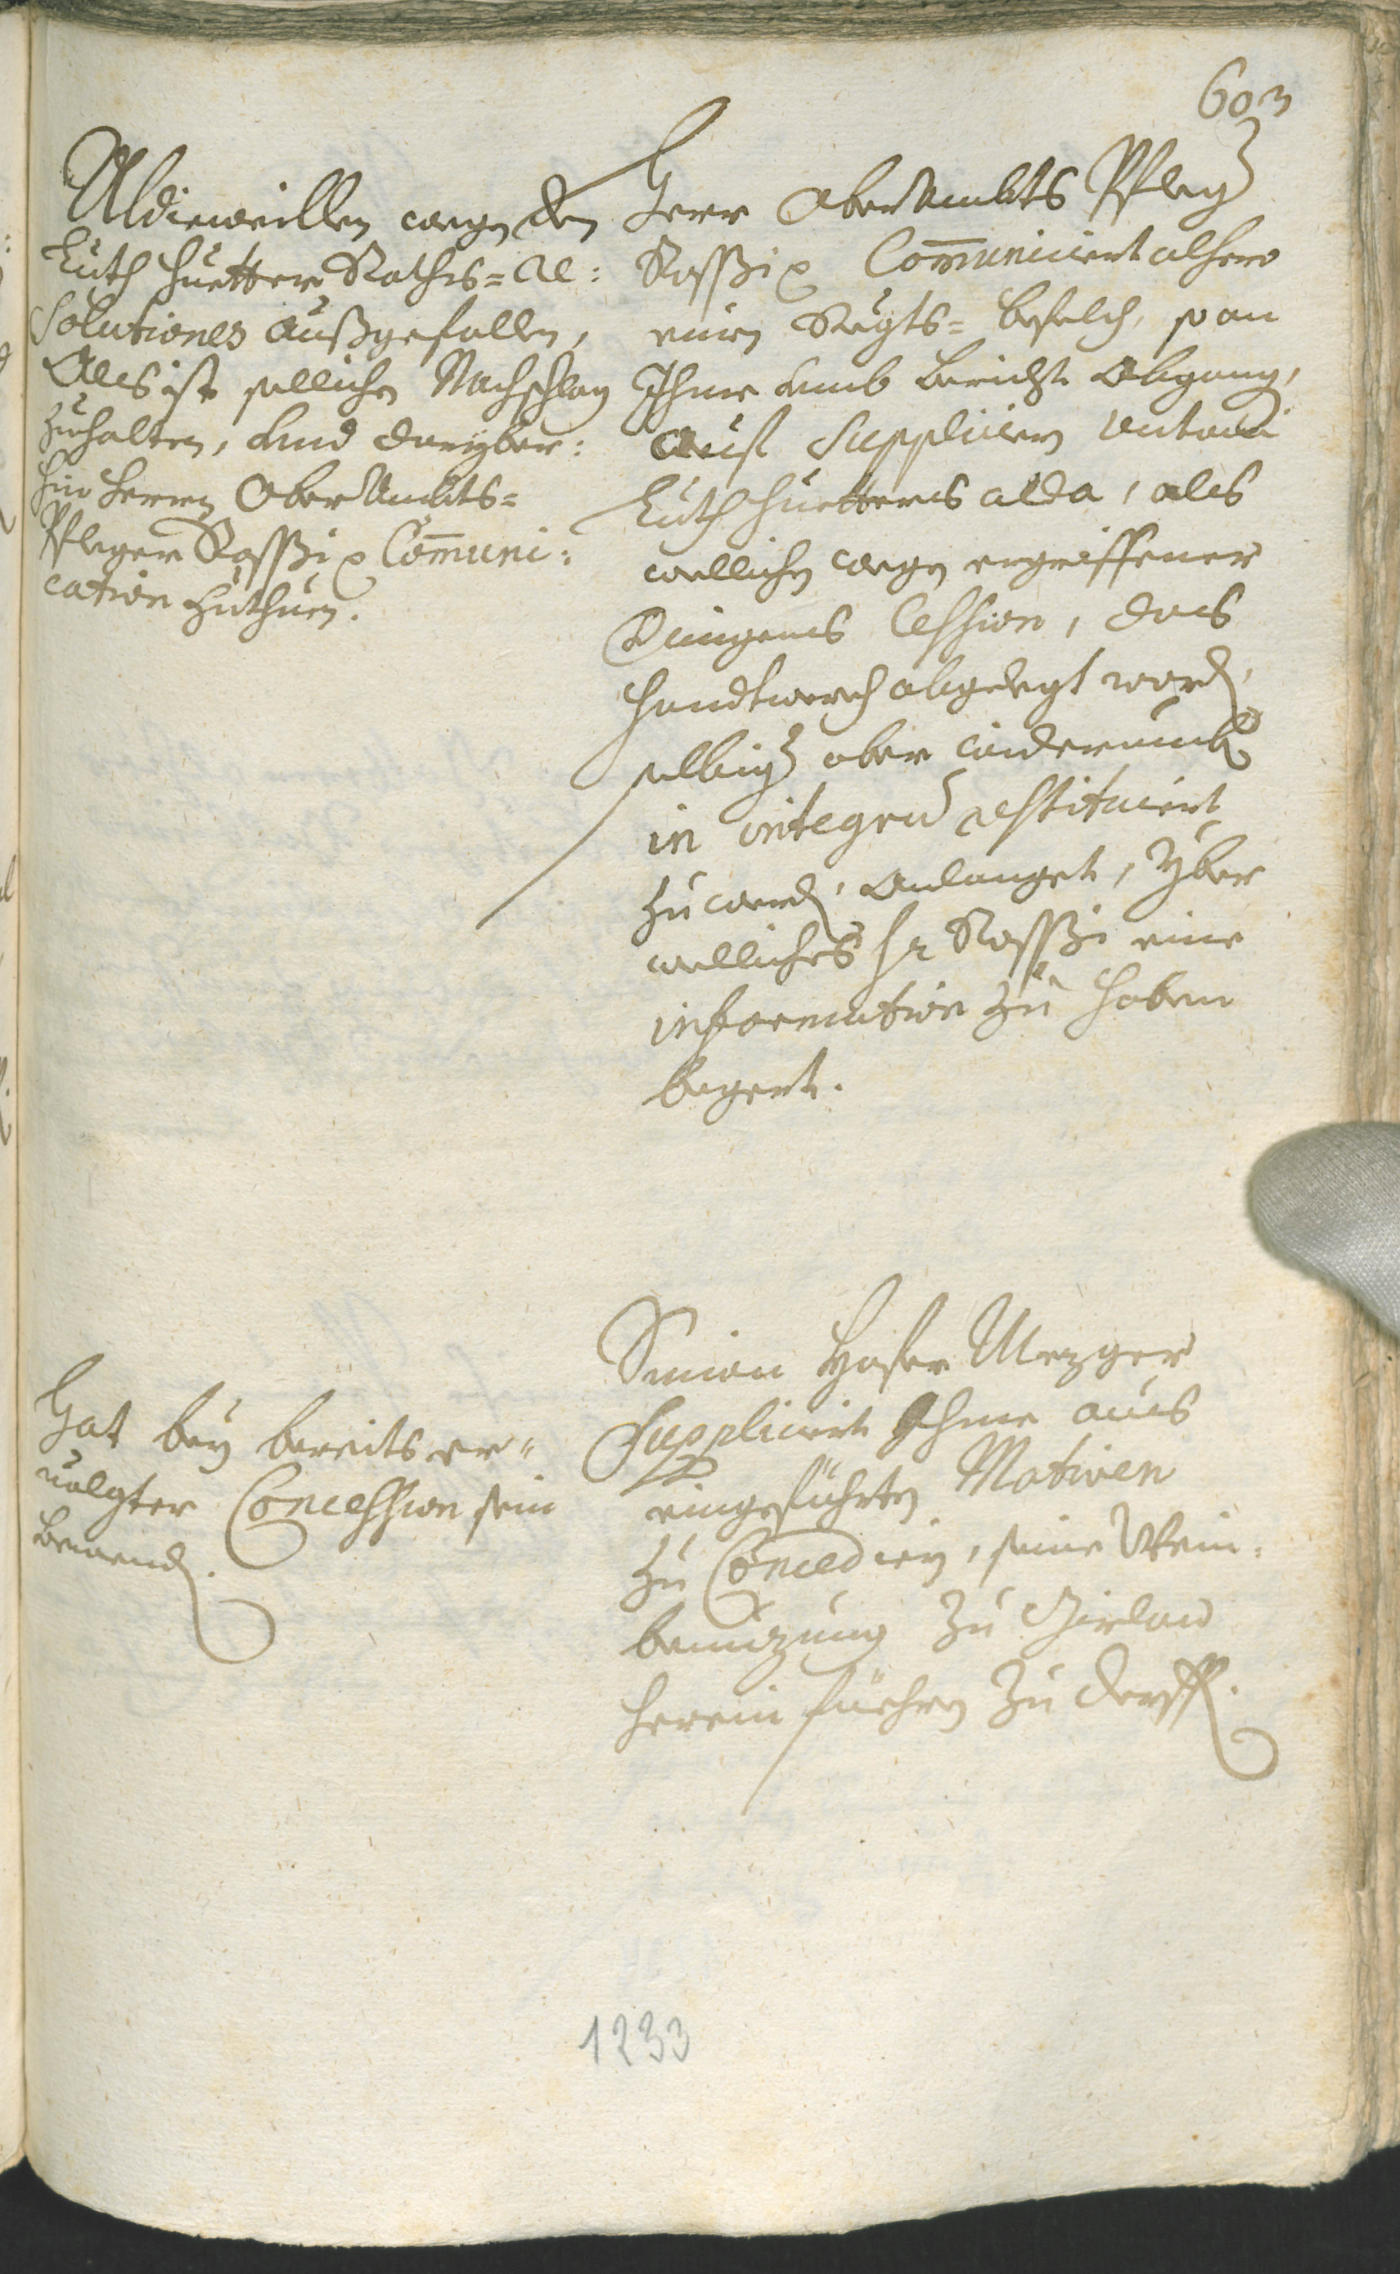 603
Aldieweillen wegen den
Luth huetter Raths=Re:
solutiones außgefallen,
Als ist selliche Nachschlag
zuhalten, vnd daryber:
hin herrn Ober Ambts=
Pfleger Rossi Communi:
cation zuthuen.
Herr Ober Ambts Pfleger
Rossi Communiciert alhero
einen Regts= befelch, so an
Ihme vmb bericht Abgang,
auf Supplicien Antoni
Luth huetters alda, als
wellichen wegen ergriffener
Cession, das
handtwerch abgelegt worden,
selbiger aber widerumb
in integrum restituiert
zu werden, anlanget, yber
welliches hr Rossi eine
information zu haben
begert.
Hat bey bereits er=
uolgter Concession sein
bewenden.
Simon Hofer Mezger
Supplicirt Ihme aus
eingefüehrten Motiven
zu Concedieren, seine Wein:
zu Girlan
herein füehren zu derffen.
1233